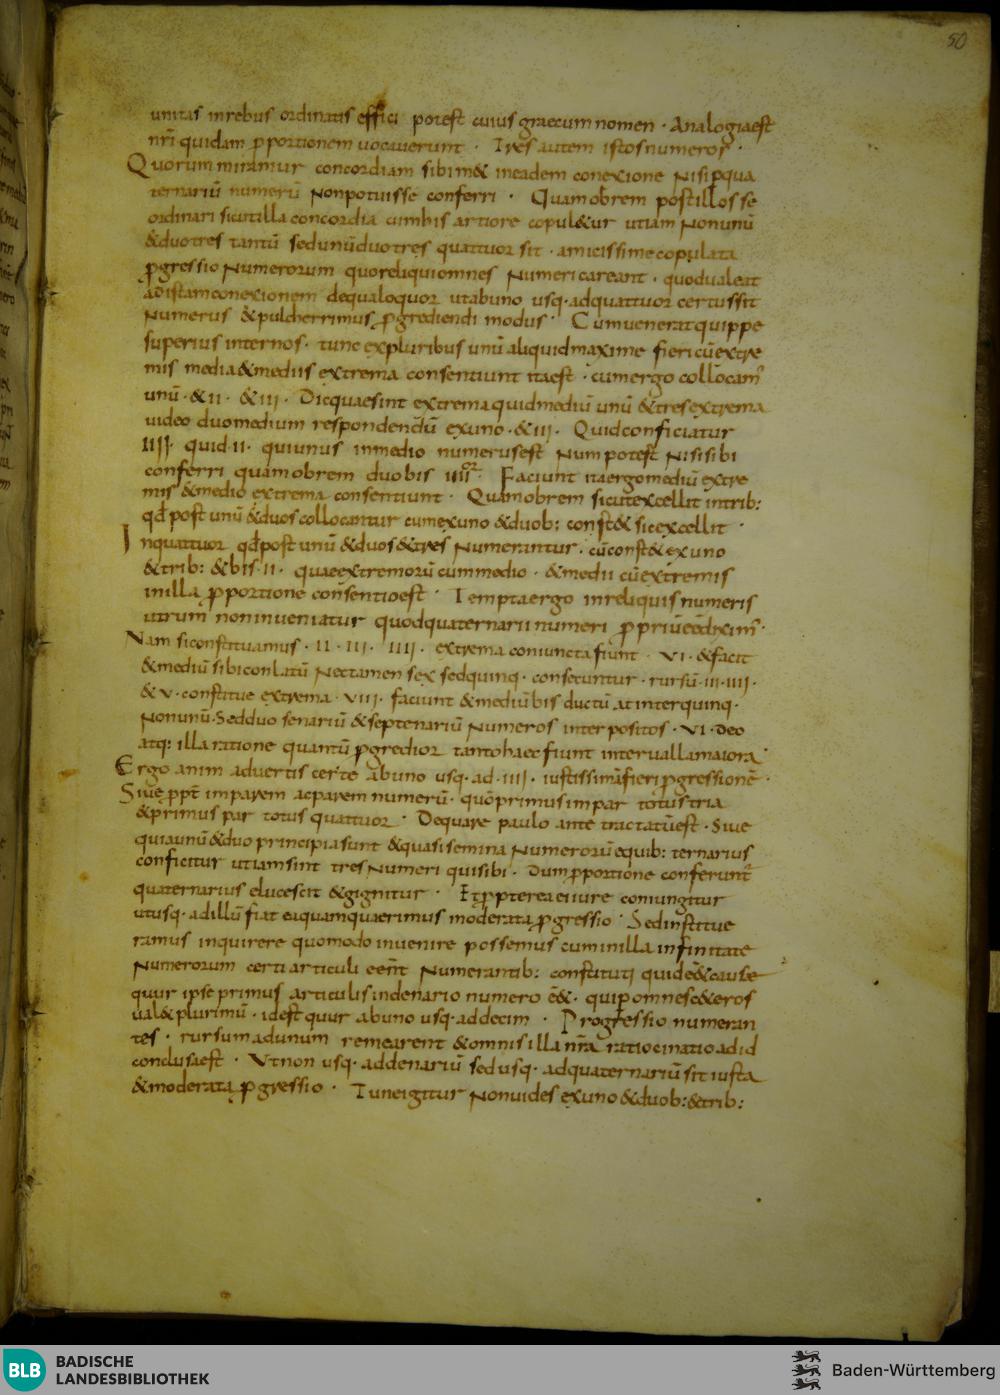 50
unitas inrebus ordinatis effici potest cuius graecum nomen · Analogia est
nr̄i quidam ꝓportionem uocauerunt · Tres autem istos numeros ·
Quorum miramur concordiam sibimet ineadem conexione Nisi ꝑ qua
ternariū numerū Nonpotuisse conferri · Quamobrem post illos se
ordinari sicut illa concordia cumhis artiore copul&ur utiam Nonunū
&duo tres tantū sed unū duo tres quattuor sit · amicissime copulata
ꝓgressio Numerorum quo reliqui omnes Numeri careant · quod ualeat
ad istam conexionem de qua loquor ut ab uno usq· ad quattuor certus sit
Numerus & pulcherrimus ꝓgrediendi modus · Cum uenerat quippe
superius internos · tunc expluribus unū aliquid maxime fieri cū extre
mis media & mediis extrema consentiunt ita est · cum ergo collocam̄
unū · & II · & III · Dic quae sint extrema quid mediū unū & tres extrema
uideo duo medium respondendū ex uno · & III · Quid conficiatur
IIII · quid · II · qui unus in medio numerus est Num potest Nisi sibi
conferri quamobrem duo bis IIIIor · Faciunt ita ergo mediū extre
mis & medio extrema consentiunt · Quamobrem sicut excellit in trib:
qđ post unū & duos collocantur cum ex uno & duob: const& sic excellit ·
In quattuor qđ post unū & duos & tres Numerantur · cū const& ex uno
& trib: & bis · II · quae extremorū cum medio · & medii cū extremis
in illa ꝓportione consentio est · Tempta ergo in reliquis numeris
utrum non inueniatur quod quaternarii numeri ꝓpriū ee diximꝰ ·
Nam si constituamus · II · III · IIII · extrema coniuncta fiunt · VI · & facit
& mediū sibi conlatū Nec tamen sex sed quinq· consecuntur · rursū · III · IIII ·
& V · constitue extrema · VIII · faciunt & mediū bis ductū at inter quinq·
Non unū · Sed duo senariū & septenariū Numeros inter positos · VI · Deo
atq: illa ratione quantū ꝓgredior tanto haec fiunt interualla maiora ·
Ergo anim aduertis certe ab uno usq· ad · IIII · iustissimā fieri ꝓgressionē ·
Siue ꝓpt̄ imparem ac parem numerū · quō primus impar totus tria
& primus par totus quattuor · De qua re paulo ante tractatū est · Siue
quia unū & duo principia sunt & quasi semina Numerorū e quib: ternarius
conficitur utiam sint tres Numeri qui sibi · Dum ꝓportione conferunt̄
quaternarius elucescit & gignitur · Et ꝓpterea ei iure coniungitur
ut usq· ad illū fiat ea quam quaerimus moderata ꝓgressio · Sed institue
ramus inquirere quomodo inuenire possemus cum in illa infinitate
Numerorum certi articuli eent̄ Numerantib: constituti quidē & causae
quur ipse primus articulis in denario numero ē& · qui ꝑ omnes c&eros
ual& plurimū · id est quur ab uno usq· ad decim · Progressio numeran
tes · rursum ad unum remearent & omnis illa nr̄a ratiocinatio ad id
conclusa est · Ut non usq· ad denariū sed usq· ad quaternariū sit iusta
& moderata ꝓgressio · Tu ne igitur Nonuides ex uno & duob: & trib:
BLB BADISCHE
LANDESBIBLIOTHEK
Baden-Württemberg